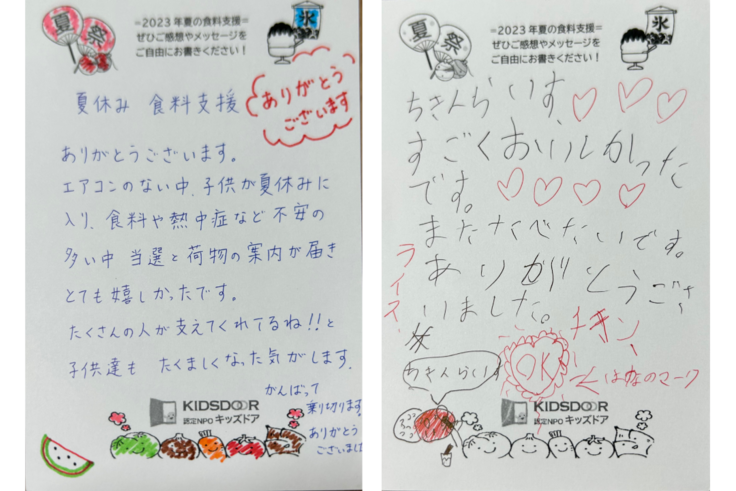 夏祭
=2023年夏の食料支援=
ぜひご感想やメッセージを
ご自由にお書きください!
氷
夏休み 食料支援
ありがとう
ございます
ありがとうございます。
エアコンのない中、子供が夏休みに
入り、食料や熱中症など不安の
多い中 当選と荷物の案内が届き
とても嬉しかったです。
たくさんの人が支えてくれてるね!!と
子供達も たくましくなった気がします。
がんばって
乗り切ります
ありがとう
ございました
KIDSDOOR
認定NPO キッズドア
夏祭
=2023年夏の食料支援=
ぜひご感想やメッセージを
ご自由にお書きください!
氷
ちきんらいす、
すごくおいしかった
です。
またたべたいです。
ありがとうござ
いました。
ライス
チキン
OK
はなのマーク
KIDSDOOR
認定NPO キッズドア